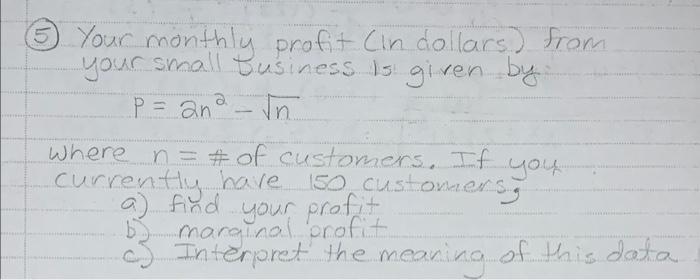 ⑤ Your monthly profit (in dollars) from
your small business is given by:
P = 2n² - √n
where n = # of customers. If you
currently have 150 customers;
a) find your profit
b) marginal profit
c) Interpret the meaning of this data